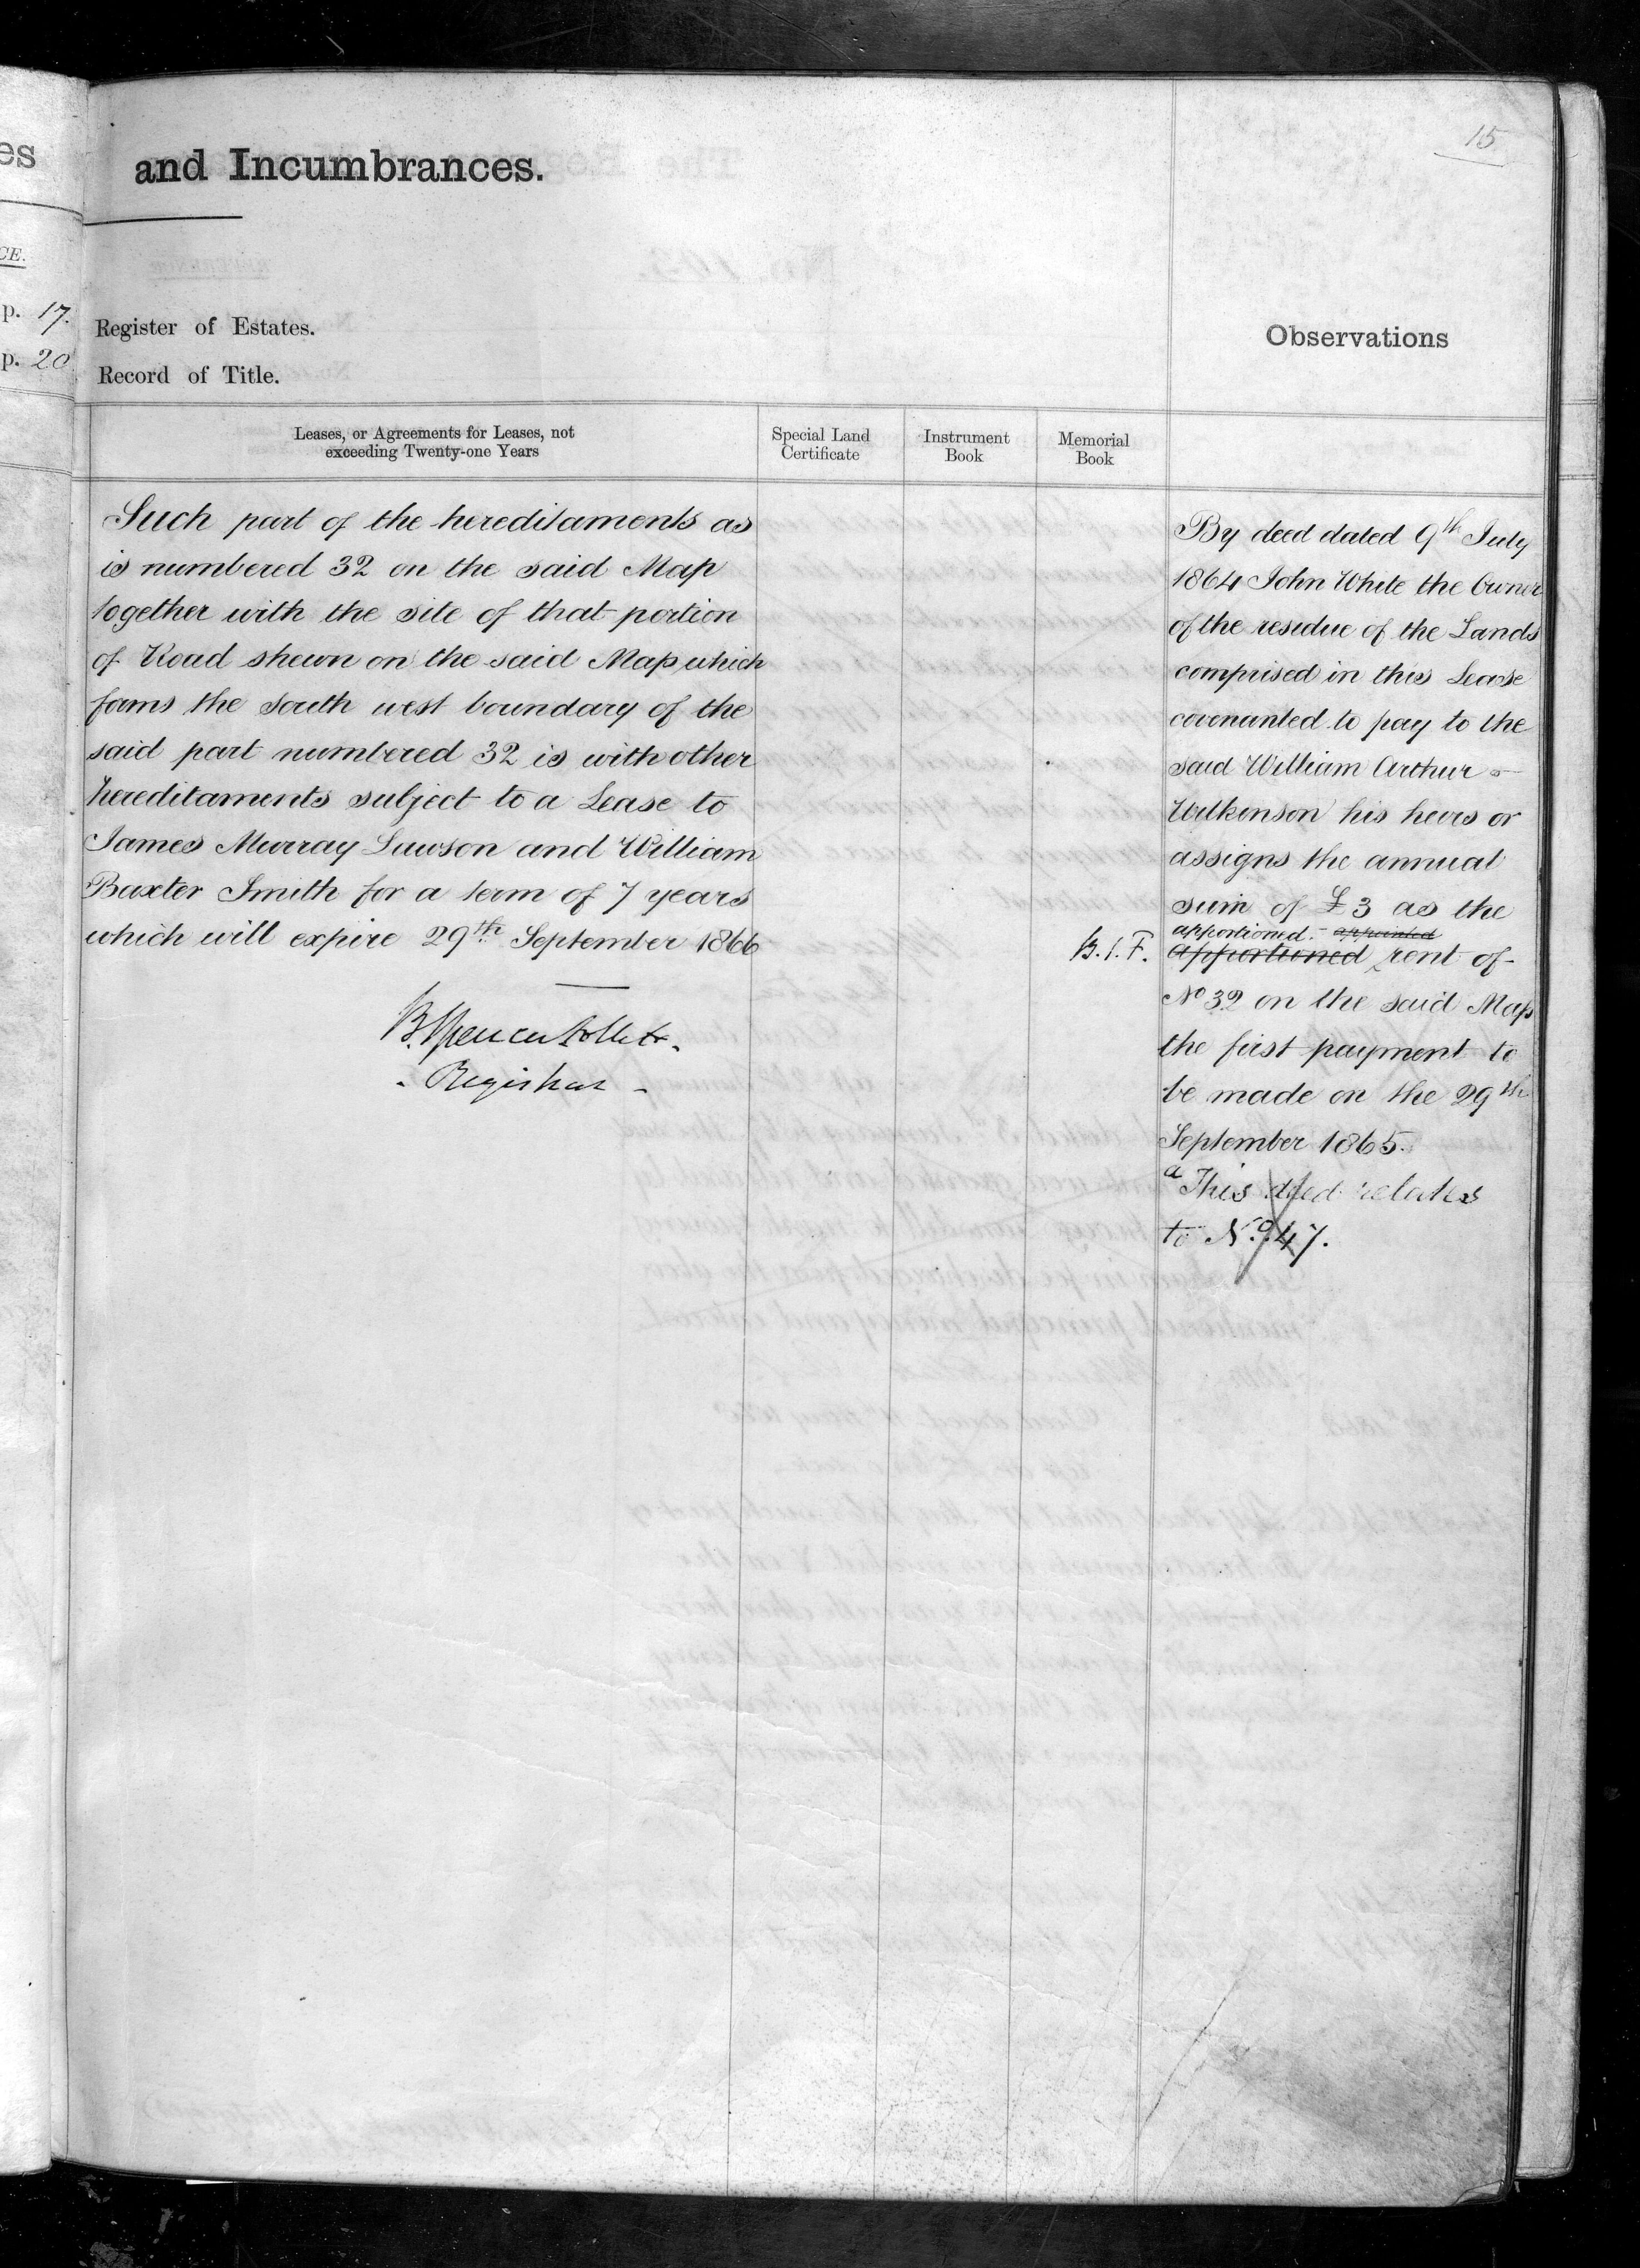 15
es
and Incumbrances.
CE.
p. 17.
Register of Estates.
Observations
p. 20
Record of Title.
Leases, or Agreements for Leases, not
exceeding Twenty-one Years
Special Land
Certificate
Instrument
Book
Memorial
Book
Such part of the hereditaments as
is numbered 32 on the said Map
together with the site of that portion
of Road shewn on the said Map which
forms the south west boundary of the
said part numbered 32 is with other
hereditaments subject to a Lease to
James Murray Lawson and William
Baxter Smith for a term of 7 years
which will expire 29th September 1866
Registrar
By deed dated 9th July
1864 John White the Owner
of the residue of the Lands
comprised in this Lease
covenanted to pay to the
said William Arthur
Wilkinson his heirs or
assigns the annual
sum of £3 as the
apportioned. appointed
B.S.F. apportioned rent of
No 32 on the said Map
the first payment to
be made on the 29th
September 1865.
a This deed relates
to No. 47.